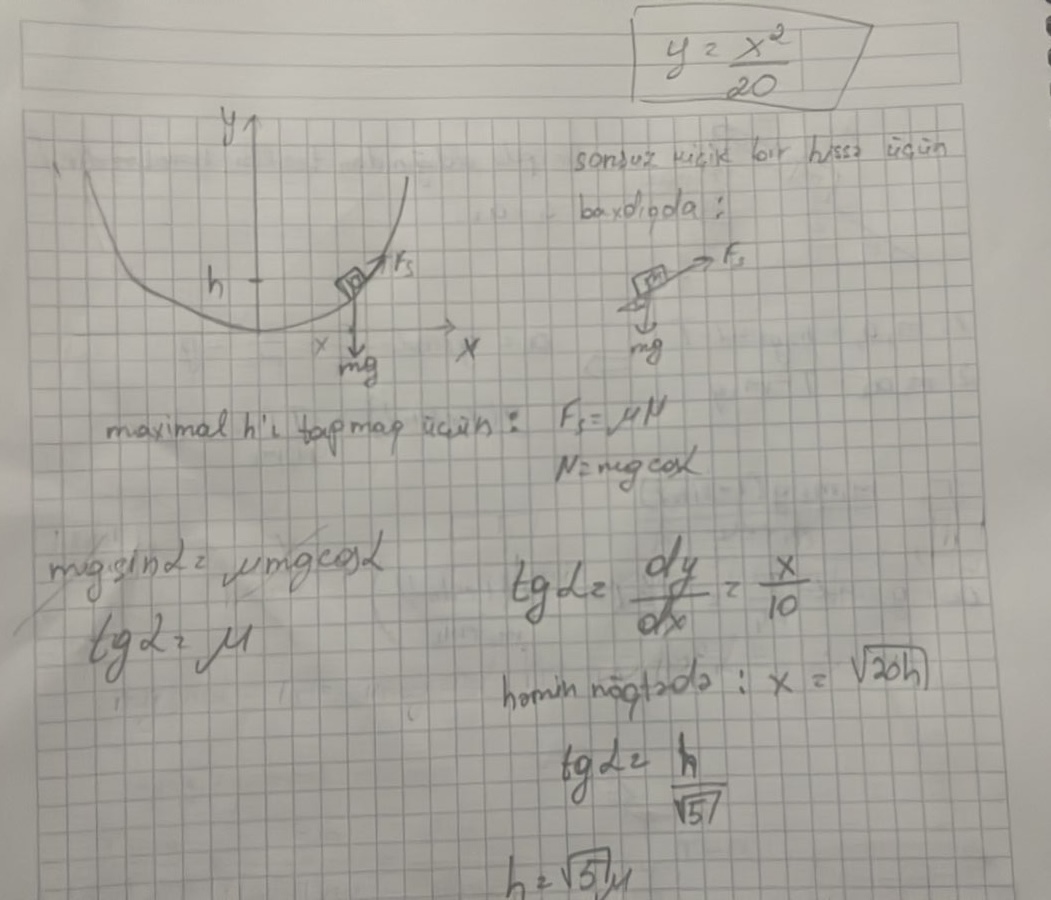 y = x²/20
y
sonsuz kiçik bir hissə üçün
baxdıqda :
Fs
Fs
h
m
m
x
x
mg
mg
maximal h'ı tapmaq üçün : Fs = μN
N = mg cosα
mg sinα = μmg cosα
tgα = dy/dx = x/10
tgα = μ
həmin nöqtədə : x = √20h
tgα = h/√5
h = √5 μ